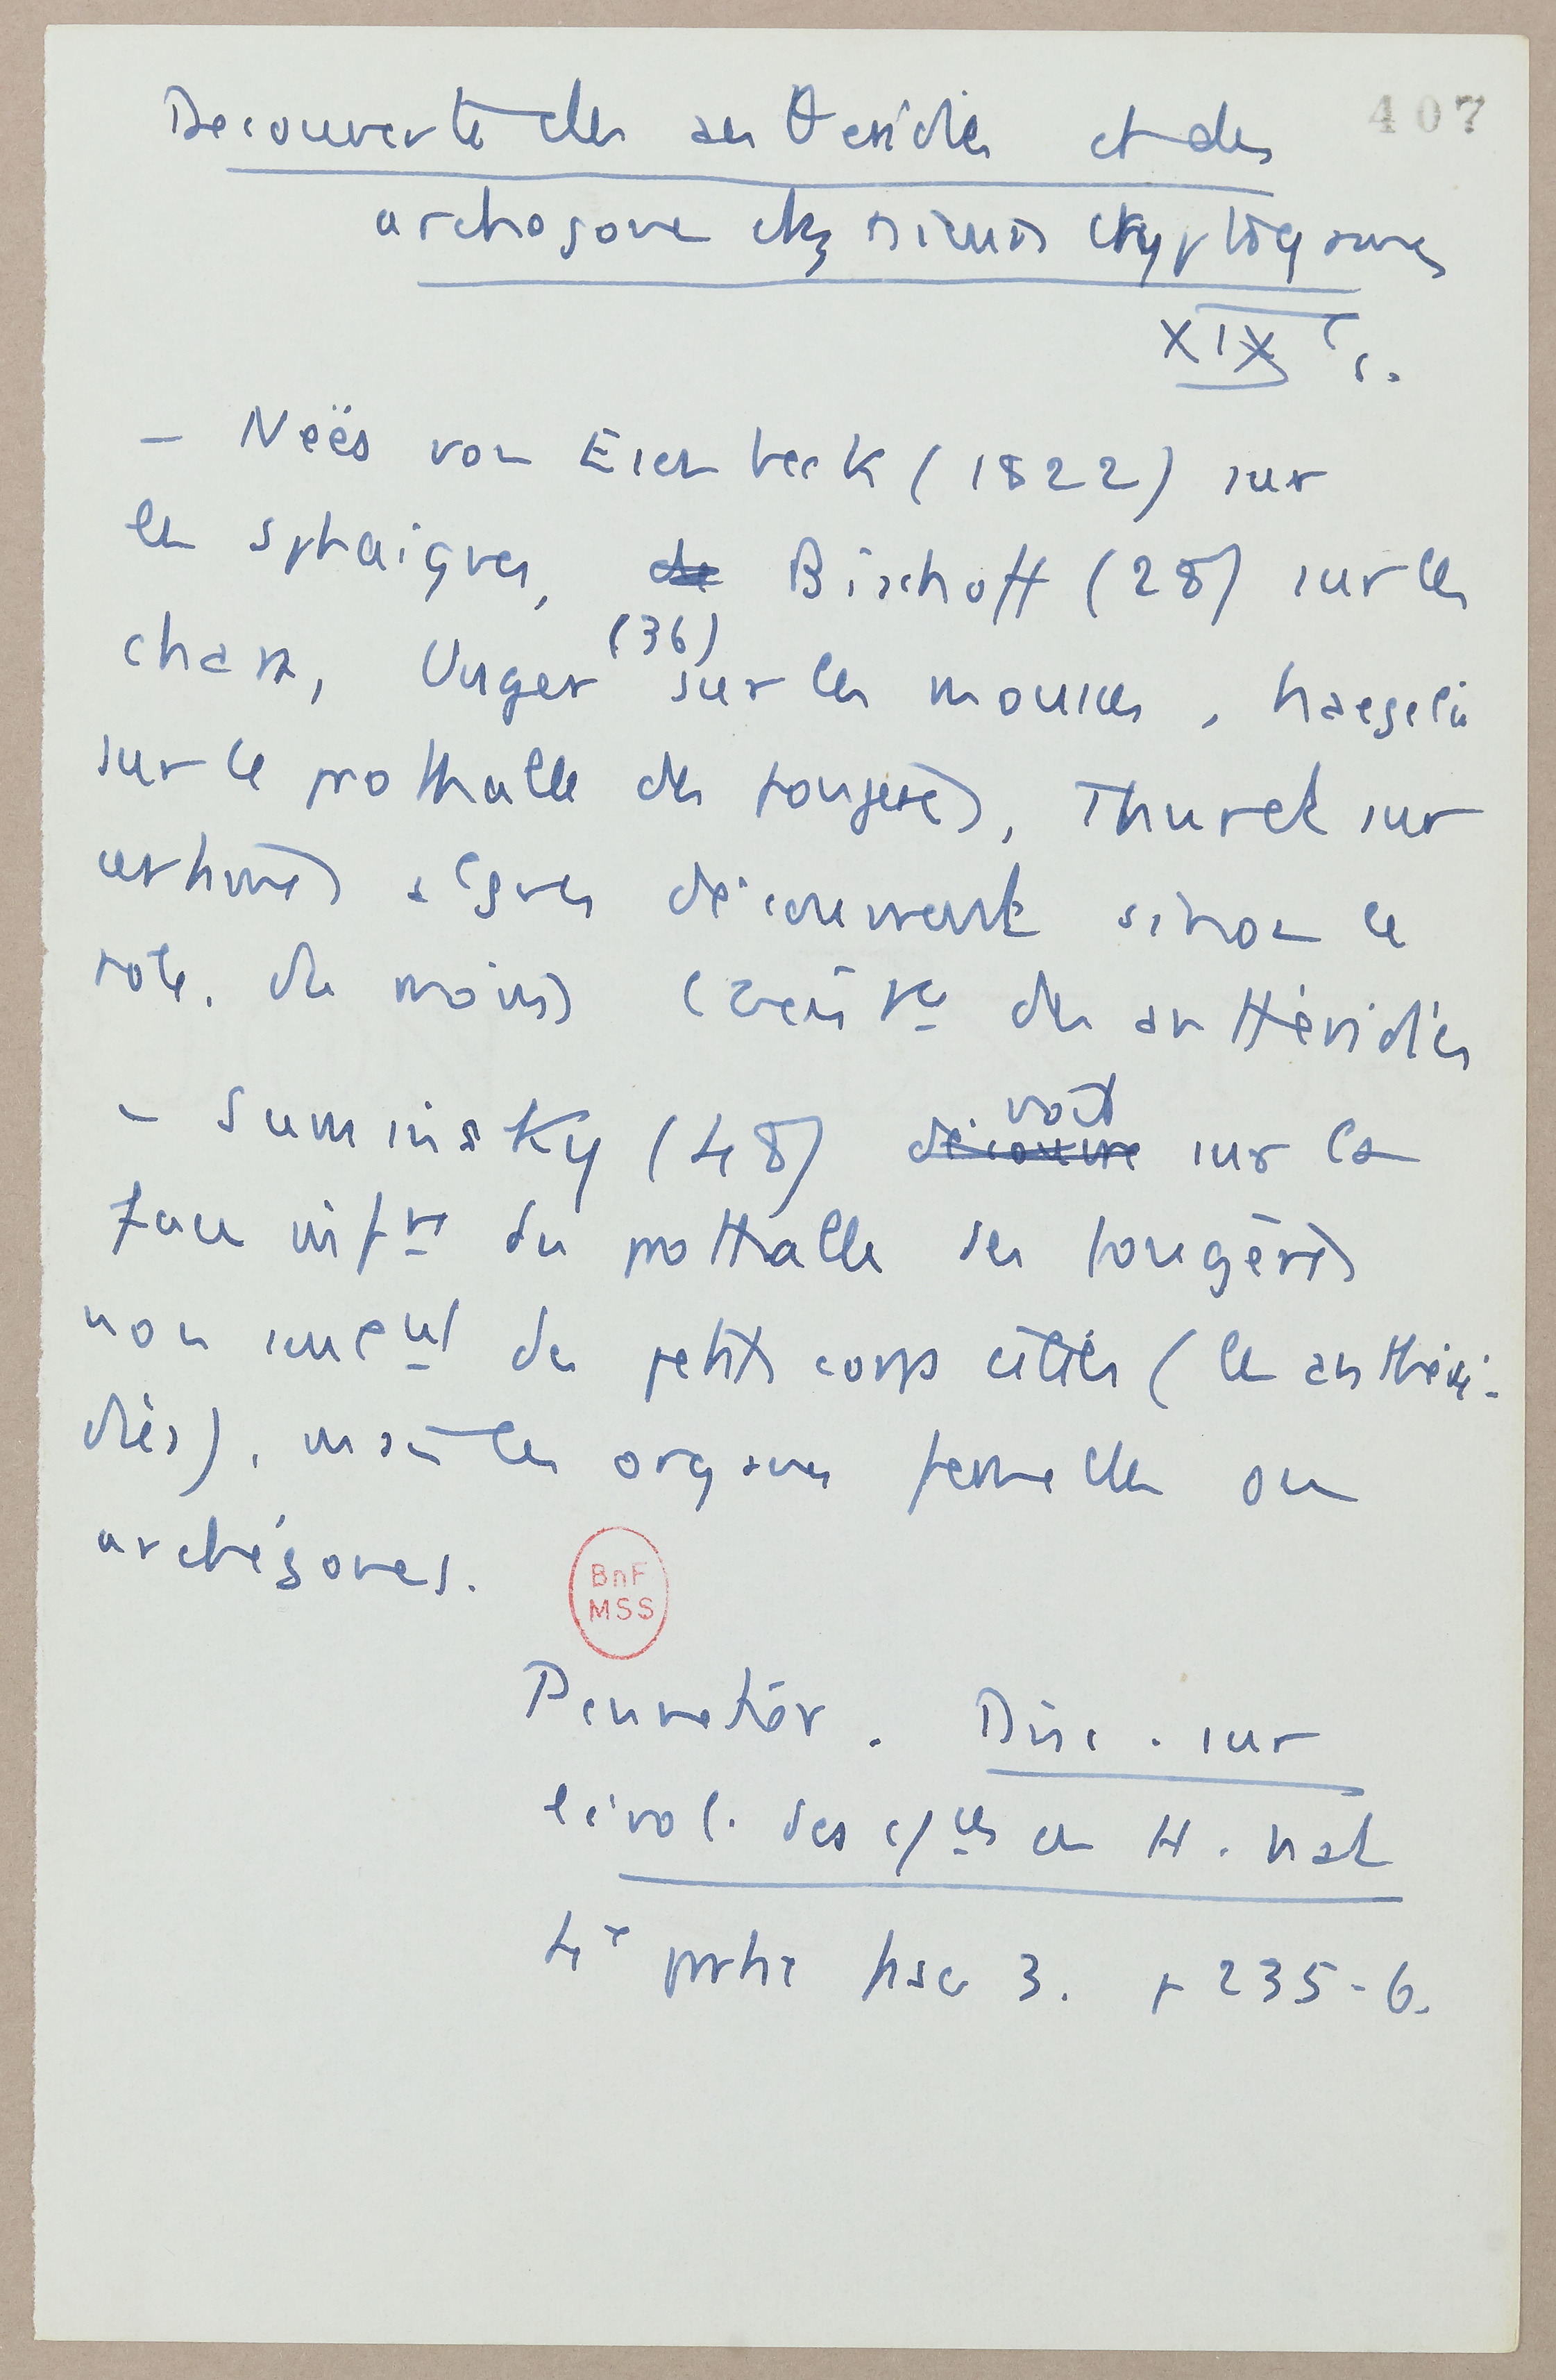 407
Decouverte des antheridies et des
archegone chez divers cryptogames
XIXe s.
– Neës von Esenbeck (1822) sur
les sphaignes, de Bischoff (28) sur les
chara, Unger (36) sur les mousses, Naegeli
sur le prothalle des fougères, Thuret sur
certaines algues découvrent sinon le
role, du moins l'existce des anthéridies
– Suminsky (48) découvre voit sur la
face infre du prothalle des fougères
non seulent des petits corps ciliés (les anthéri-
dies), mais les organes femelles ou
archégones.
BnF
MSS
Pennetier. Disc. sur
l'évol. des cces en H. nat
4e partie fasc 3. p 235-6.